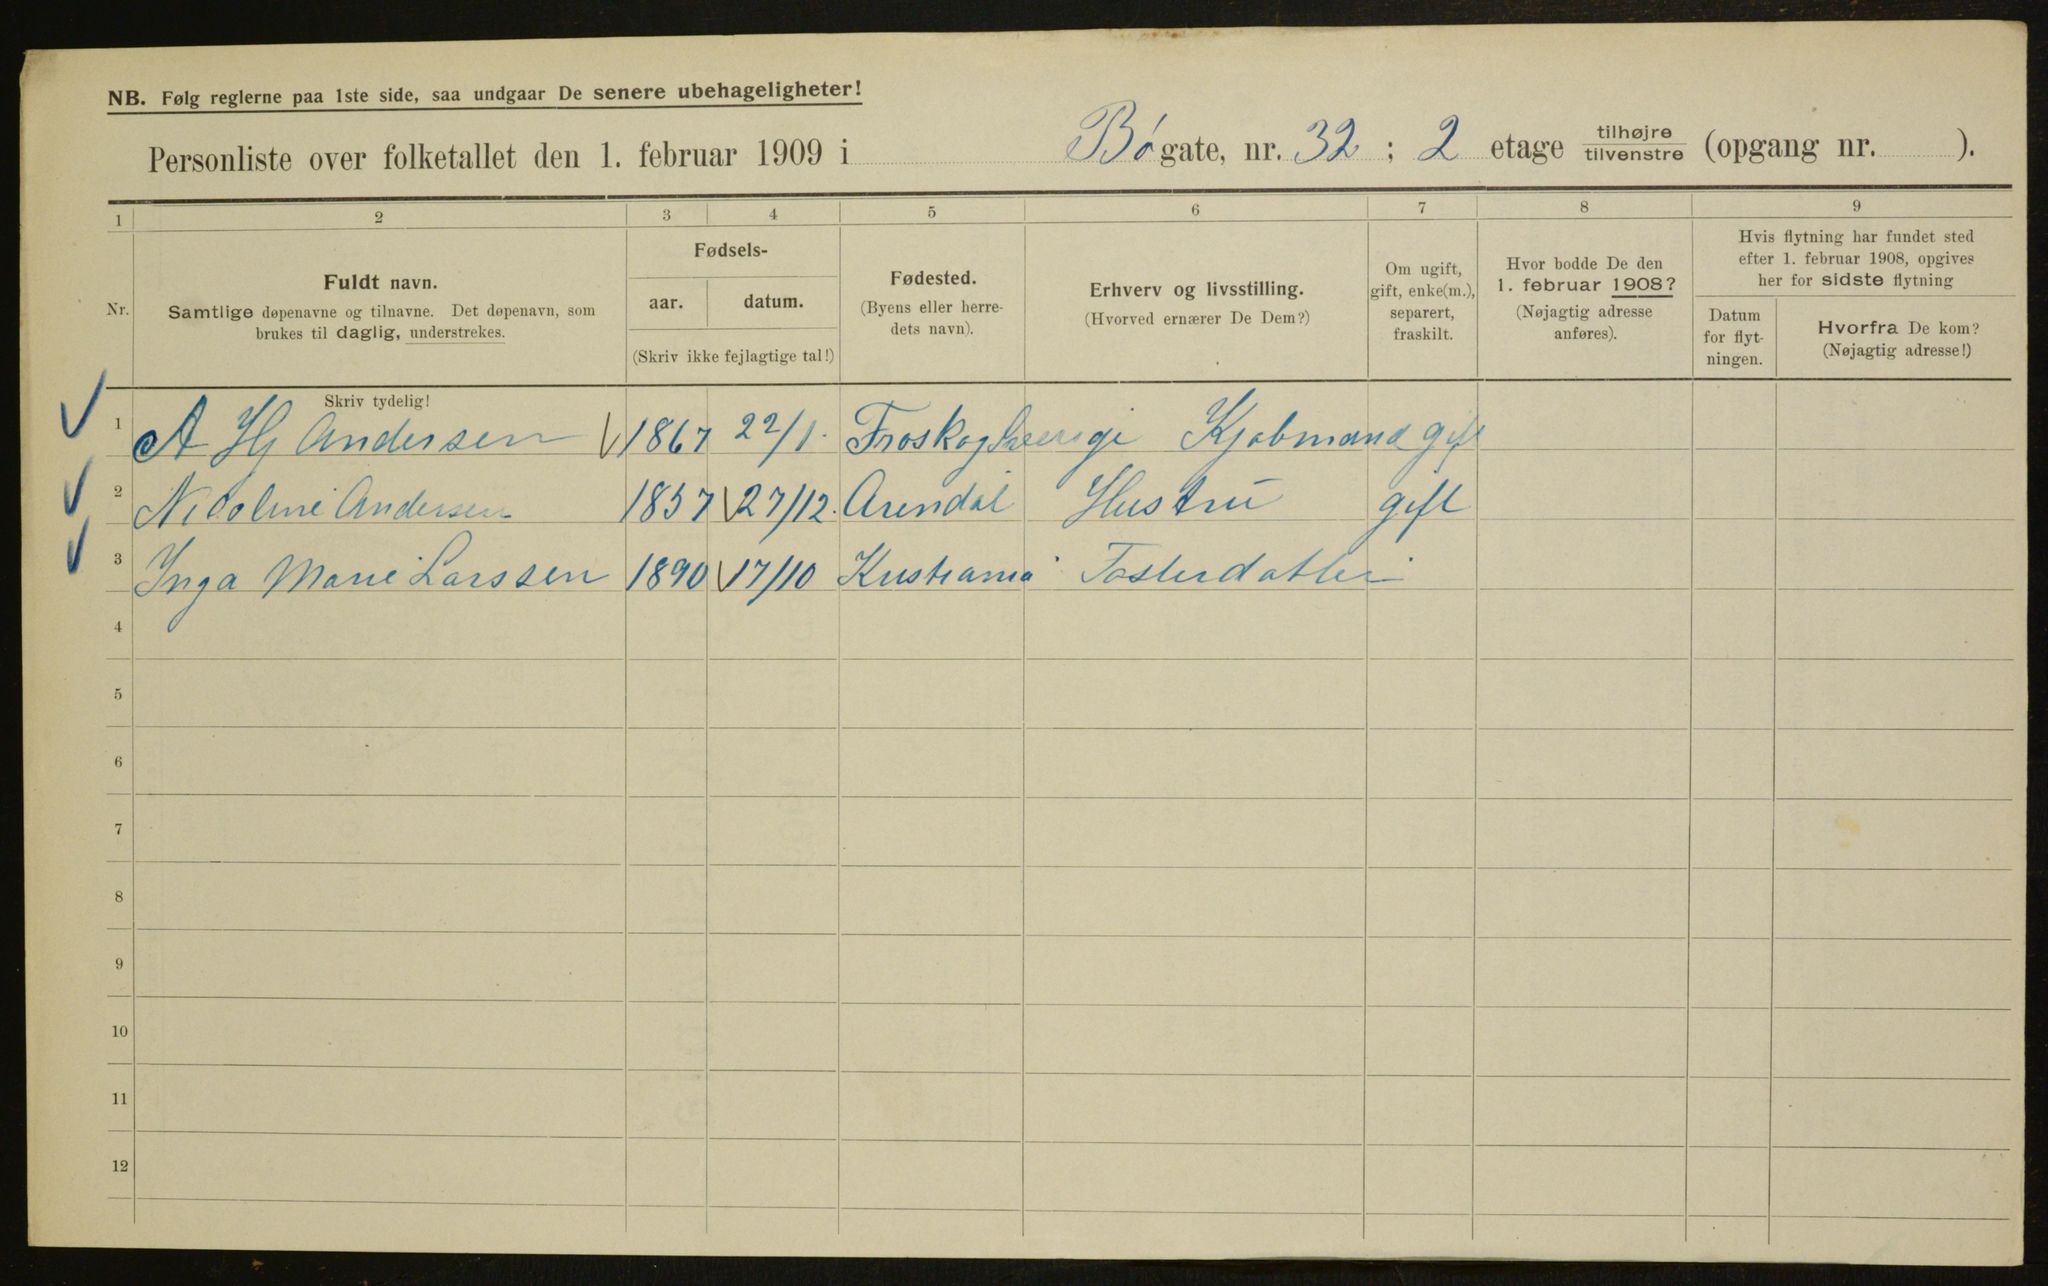 NB. Følg reglerne paa 1ste side, saa undgaar De senere ubehageligheter!
Personliste over folketallet den 1. februar 1909 i Bøgate, nr. 32 ; 2 etage tilhøjre/tilvenstre (opgang nr. ).
1 2 3 4 5 6 7 8 9
Nr.
Fuldt navn.
Samtlige døpenavne og tilnavne. Det døpenavn, som
brukes til daglig, understrekes.
Skriv tydelig!
Fødsels-
aar. datum.
(Skriv ikke fejlagtige tal!)
Fødested.
(Byens eller herre-
dets navn).
Erhverv og livsstilling.
(Hvorved ernærer De Dem?)
Om ugift,
gift, enke(m.),
separert,
fraskilt.
Hvor bodde De den
1. februar 1908?
(Nøjagtig adresse
anføres).
Hvis flytning har fundet sted
efter 1. februar 1908, opgives
her for sidste flytning
Datum
for flyt-
ningen.
Hvorfra De kom?
(Nøjagtig adresse!)
1 A Hj Andersen 1867 22/1. Froskog Sverige Kjøbmand gift
2 Nicoline Andersen 1857 27/12. Arendal Hustru gift
3 Inga Marie Larssen 1890 17/10 Kristiania Fosterdatter
4
5
6
7
8
9
10
11
12